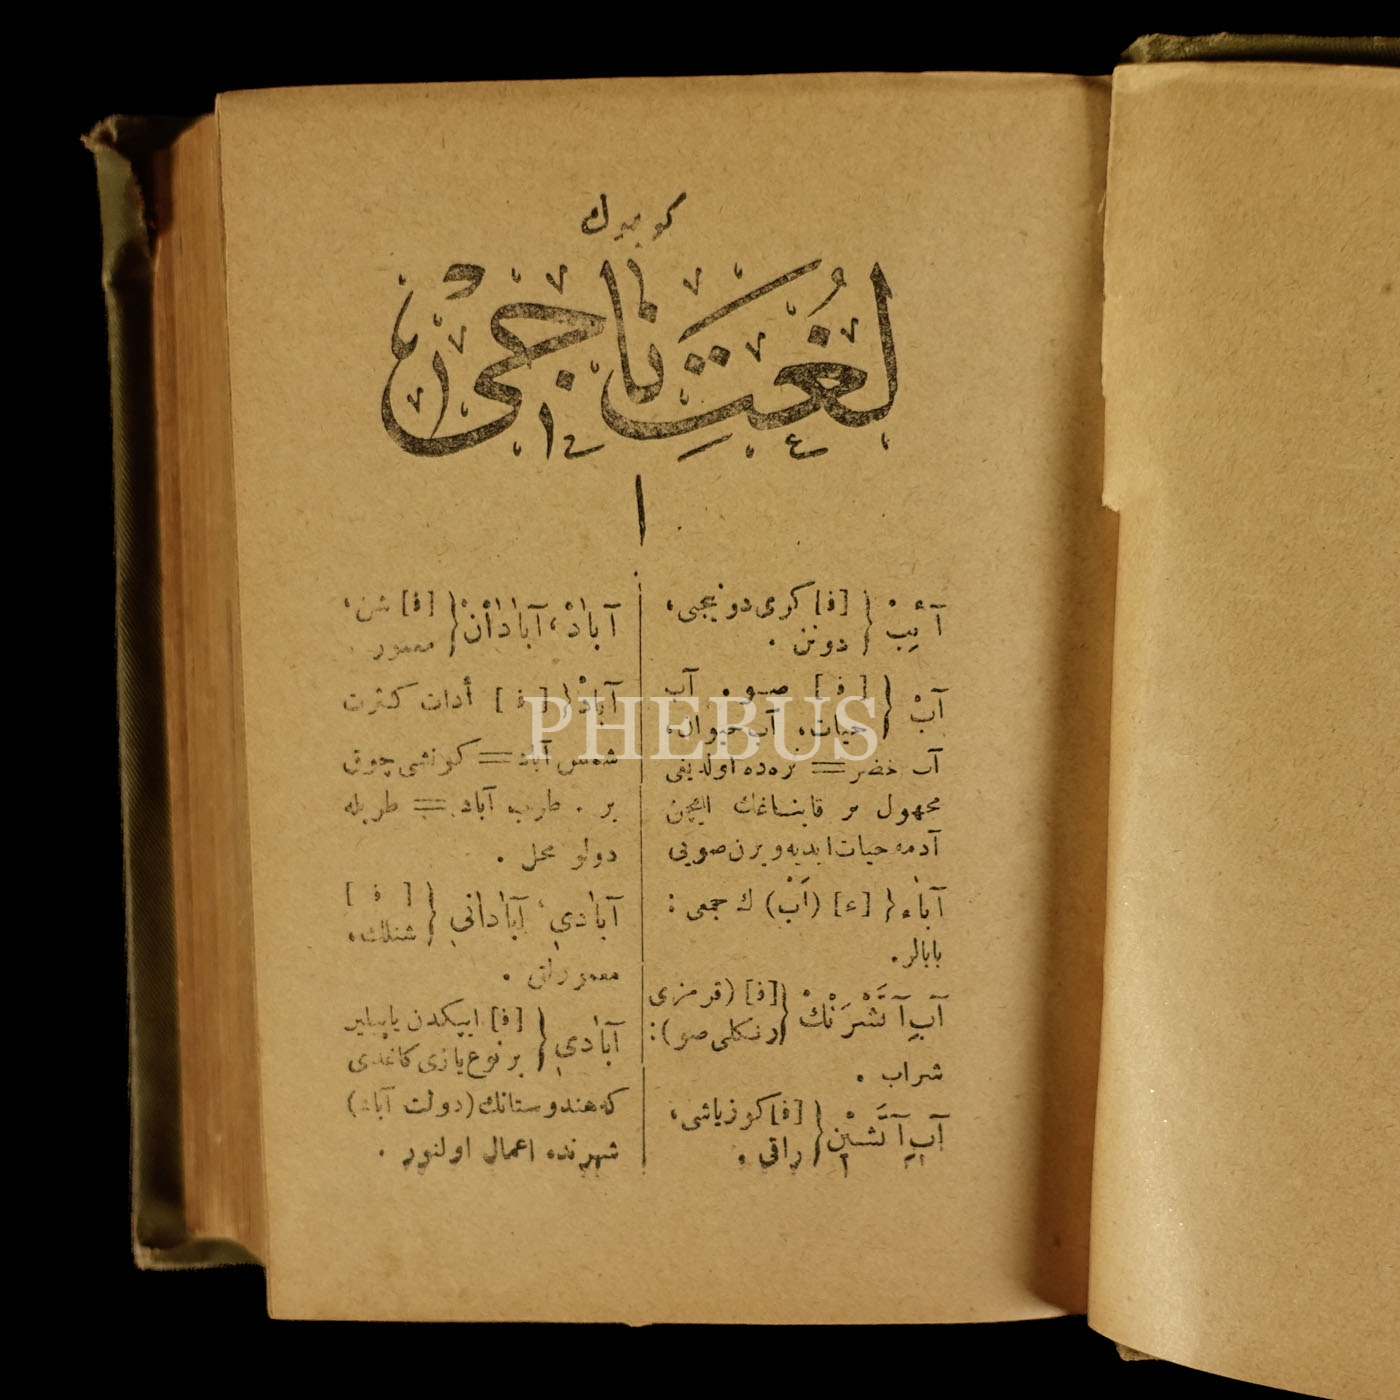 كوچوك
لُغَتِ نَاجِى
ا
آئِبْ { [ف] كرى دونيجى،
دونن .
آبْ { [ف] صو . آب
حيات، آب حيوان،
آب خضر = نره‌ده اولديغى
مجهول بر قايناغك ايچن
آدمه حيات ابديه ويرن صويى
آبَاء { [ع] (اَبْ) ك جمعى :
بابالر.
آبِ آتَشْرَنْكْ { [ف] (قرمزى
رنكلى صو) :
شراب .
آبِ آتَشينْ { [ف] كوزياشى،
راقى .
آبَادْ، آبَادَانْ { [ف] شن،
معمور .
آبَادْ { [ف] أدات كثرت
شمس آباد = كونشى چوق
ير . طرب آباد = طربله
دولو محل .
آبَادِي، آبَادَانِي { [ف]
شنلك،
معمورلق .
آبَادِي { [ف] ايپكدن ياپيلير
بر نوع يازى كاغدى
كه هندوستانك (دولت آباد)
شهرنده اعمال اولنور .
PHEBUS